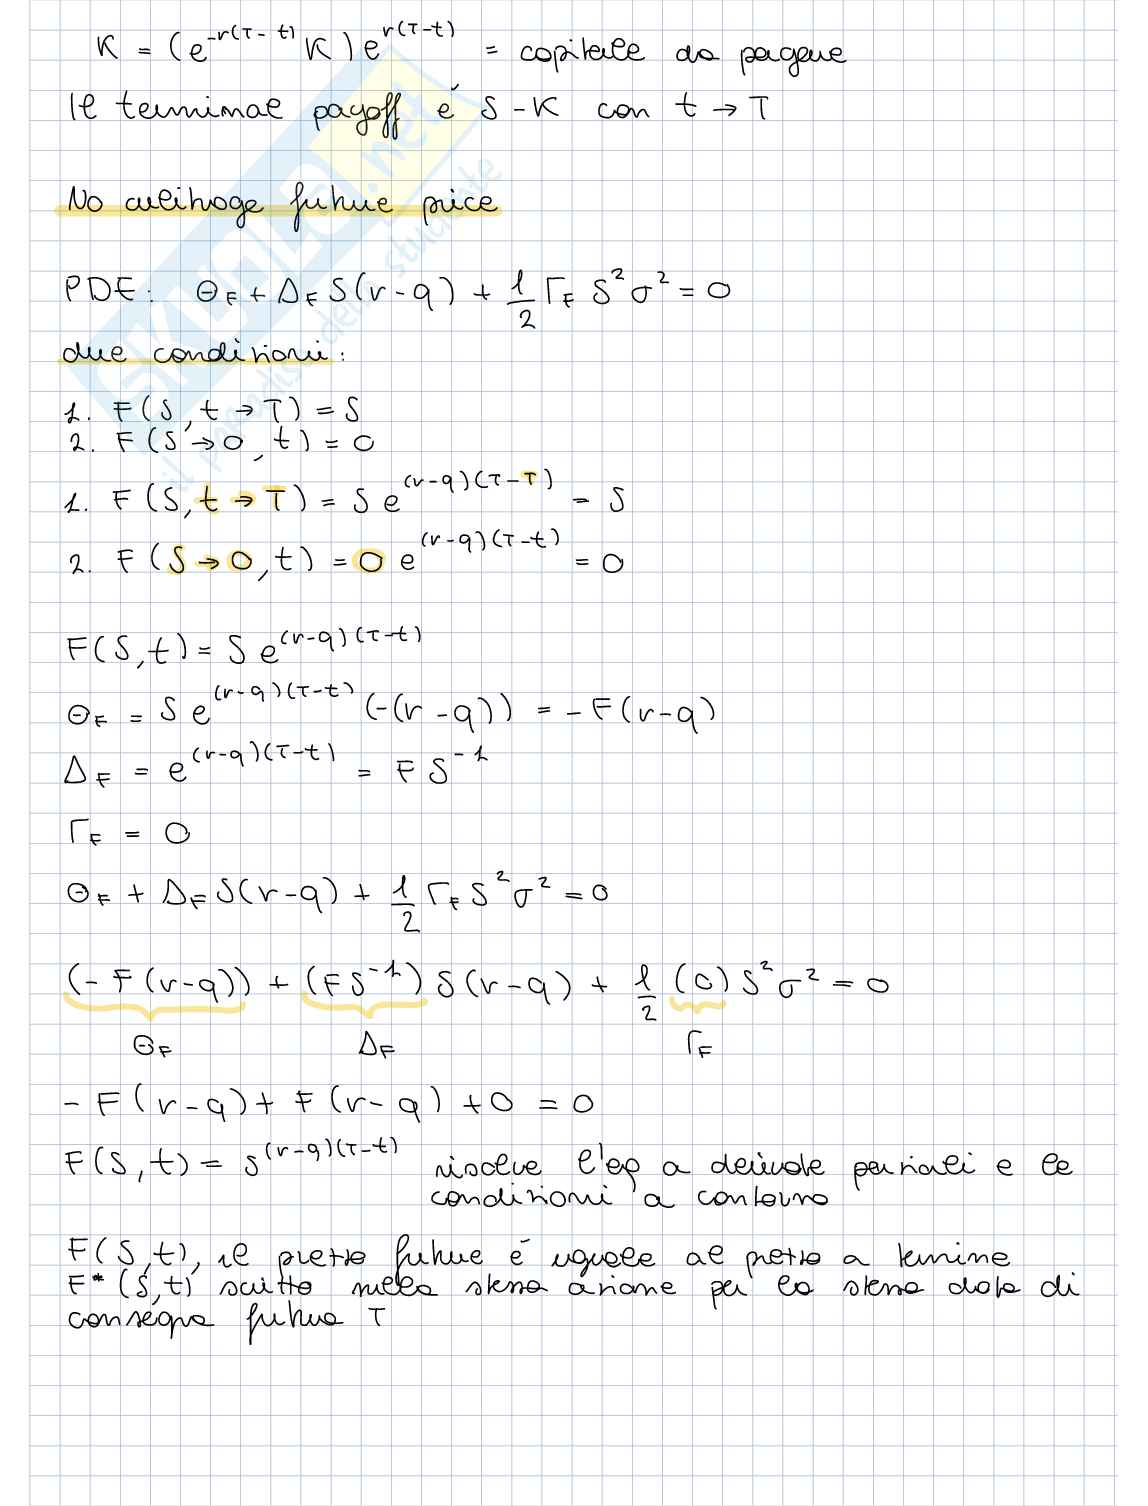 K = (e^-r(T-t) K) e^r(T-t) = capitale da pagare
Il terminal payoff é S-K con t → T
No arbitrage future price
PDE: Θ_F + Δ_F S(r-q) + 1/2 Γ_F S² σ² = 0
due condizioni:
1. F(S, t → T) = S
2. F(S → 0, t) = 0
1. F(S, t → T) = S e^(r-q)(T-T) = S
2. F(S → 0, t) = 0 e^(r-q)(T-t) = 0
F(S,t) = S e^(r-q)(T-t)
Θ_F = S e^(r-q)(T-t) (-(r-q)) = -F(r-q)
Δ_F = e^(r-q)(T-t) = F S^-1
Γ_F = 0
Θ_F + Δ_F S(r-q) + 1/2 Γ_F S² σ² = 0
(-F(r-q)) + (FS^-1) S(r-q) + 1/2 (0) S² σ² = 0
Θ_F Δ_F Γ_F
-F(r-q) + F(r-q) + 0 = 0
F(S,t) = S^(r-q)(T-t) risolve l'eq a derivate parziali e le
condizioni a contorno
F(S,t), il prezzo future é uguale al prezzo a termine
F*(S,t) scritto nella stessa azione per la stessa data di
consegna futura T
SKUOLA.net
il paradiso dello studente